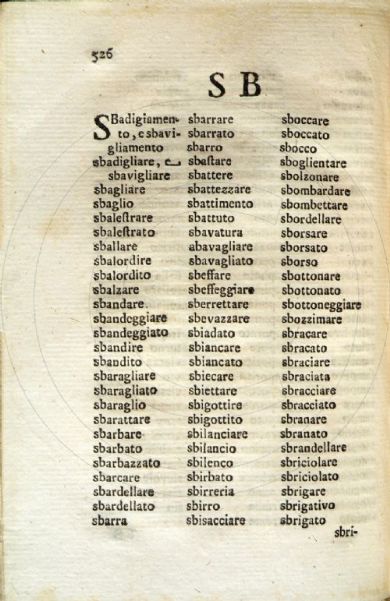 526
S B
SBadigiamen-
to, e sbavi-
gliamento
sbadigliare, e
sbavigliare
sbagliare
sbaglio
sbaleſtrare
sbaleſtrato
sballare
sbalordire
sbalordito
sbalzare
sbandare
sbandeggiare
sbandeggiato
sbandire
sbandito
sbaragliare
sbaragliato
sbaraglio
sbarattare
sbarbare
sbarbato
sbarbazzato
sbarcare
sbardellare
sbardellato
sbarra
sbarrare
sbarrato
sbarro
sbaſtare
sbattere
sbattezzare
sbattimento
sbattuto
sbavatura
abavagliare
sbavagliato
sbeffare
sbeffeggiare
sberrettare
sbevazzare
sbiadato
sbiancare
sbiancato
sbiecare
sbiettare
sbigottire
sbigottito
sbilanciare
sbilancio
sbilenco
sbirbato
sbirreria
sbirro
sbisacciare
sboccare
sboccato
sbocco
sboglientare
sbolzonare
sbombardare
sbombettare
sbordellare
sborsare
sborsato
sborso
sbottonare
sbottonato
sbottoneggiare
sbozzimare
sbracare
sbracato
sbraciare
sbraciata
sbracciare
sbracciato
sbranare
sbranato
sbrandellare
sbriciolare
sbriciolato
sbrigare
sbrigativo
sbrigato
sbri-